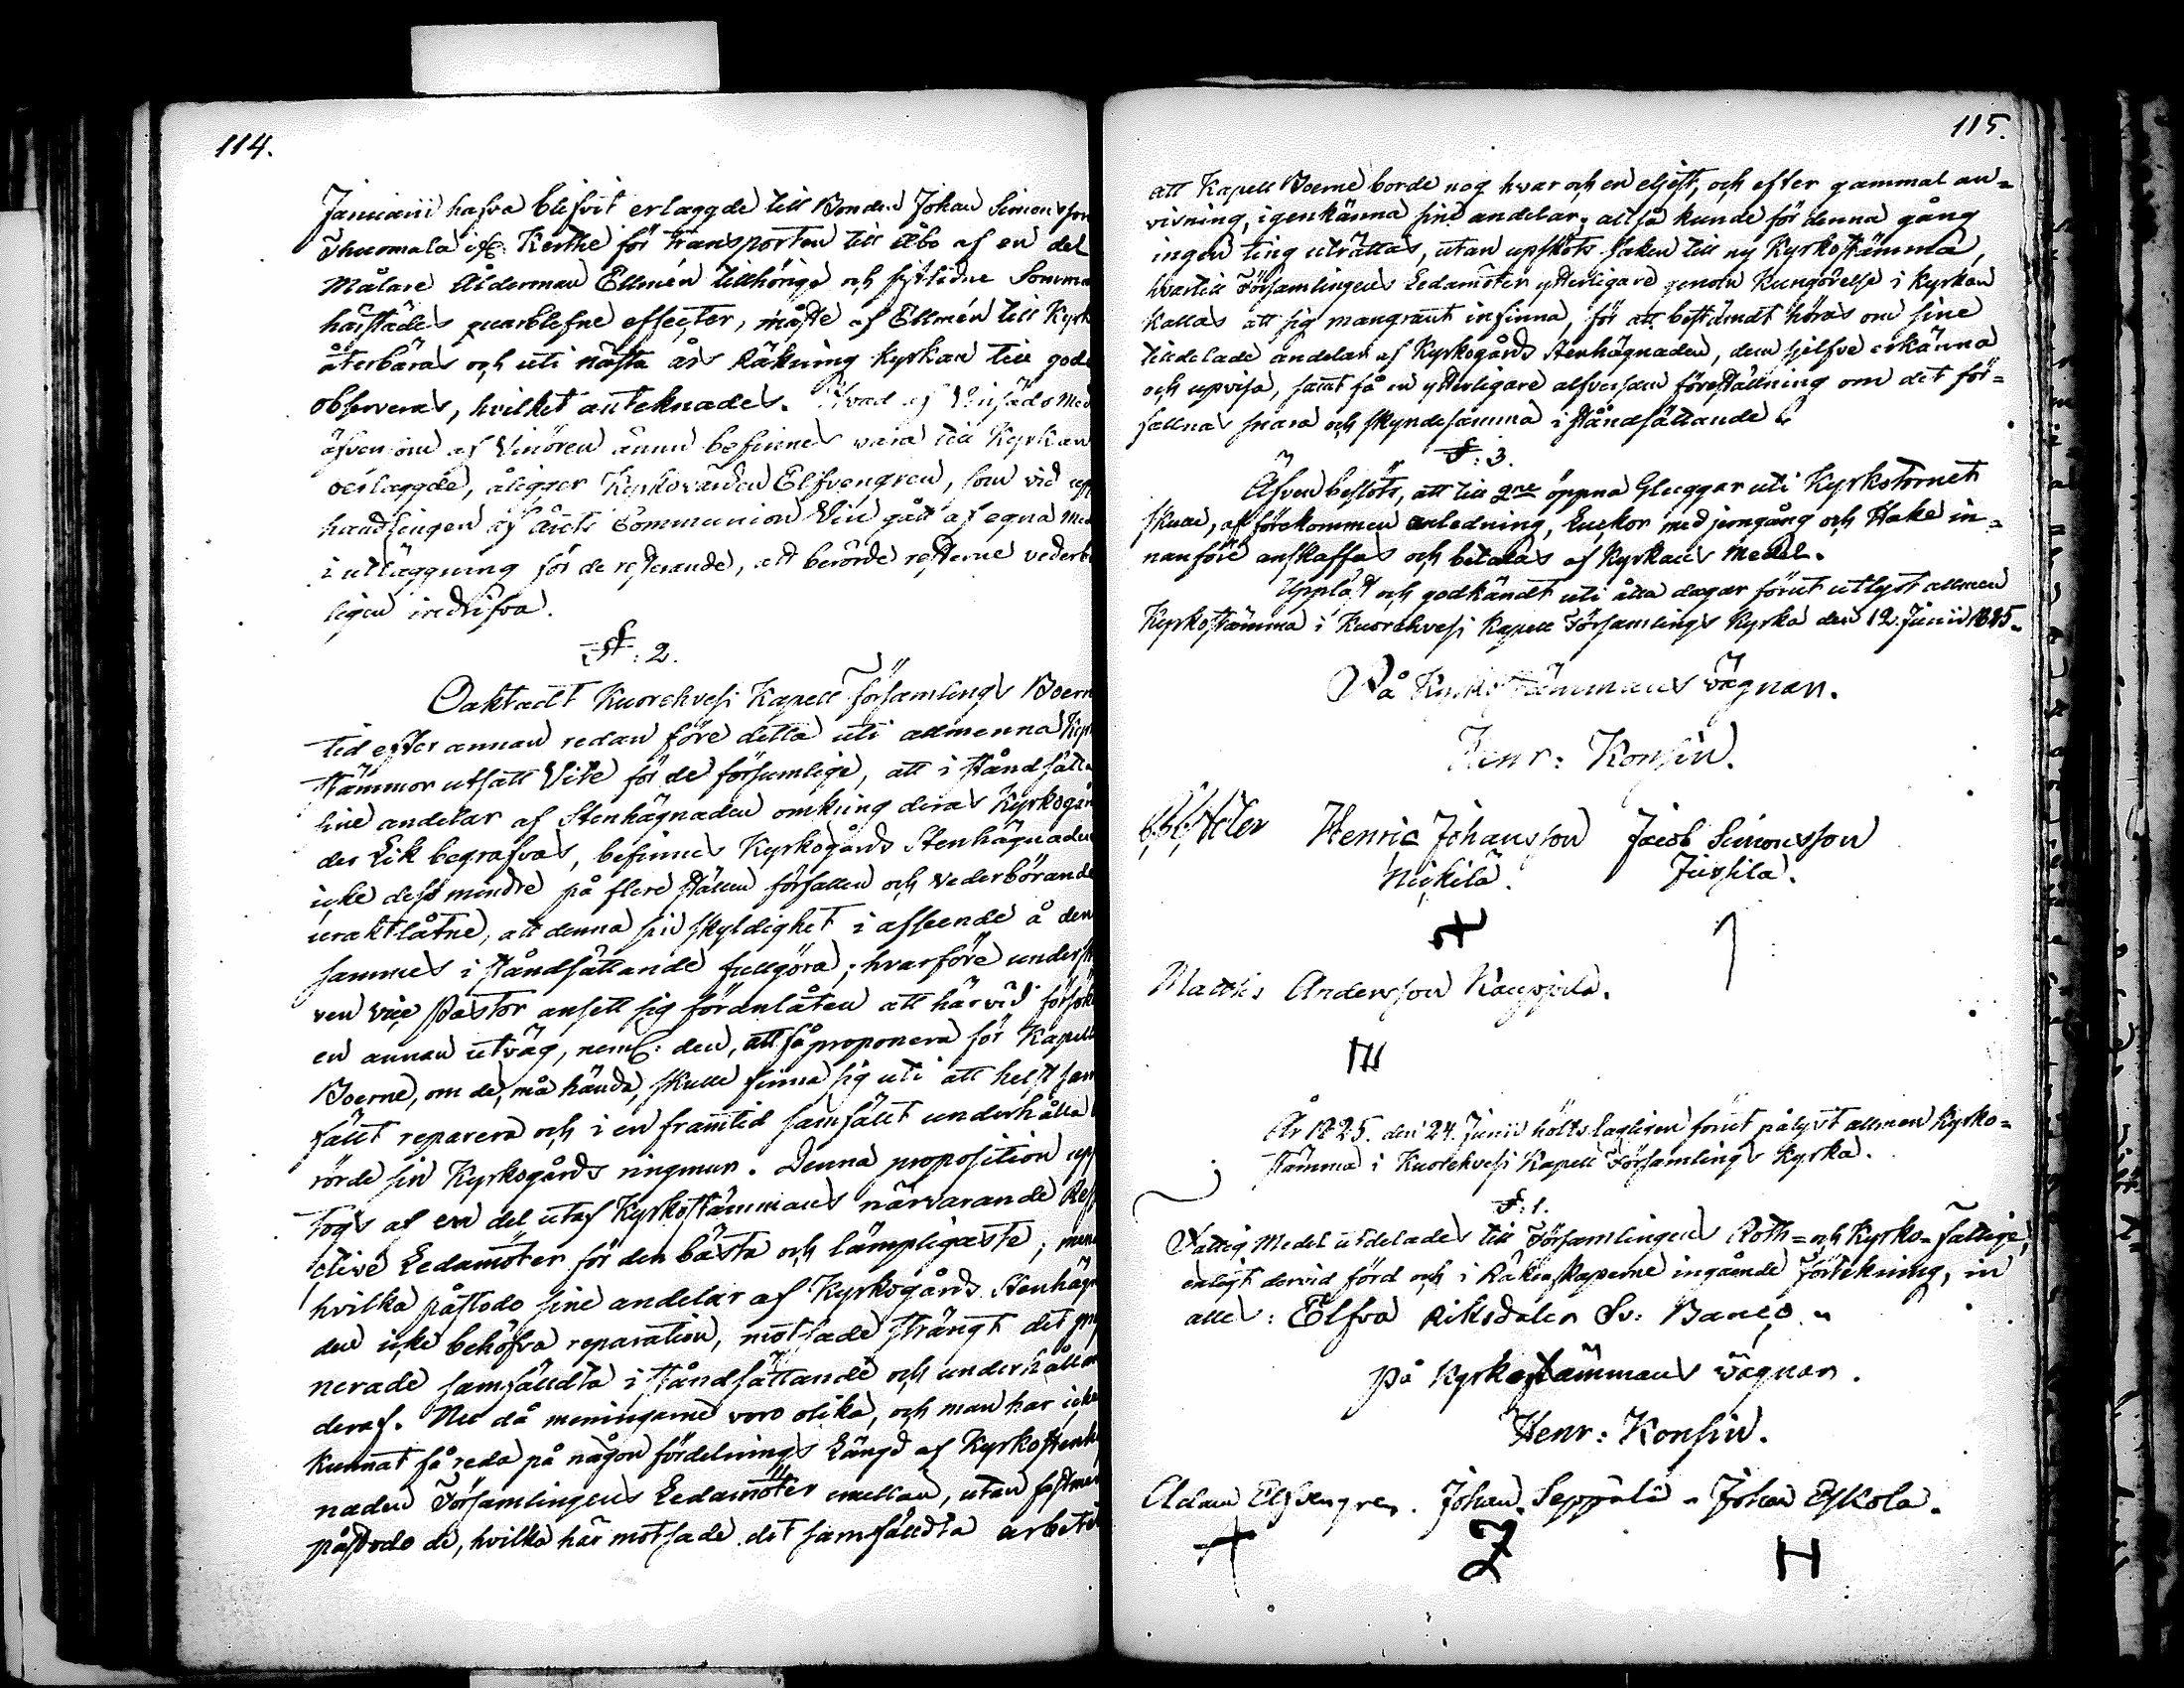 114.
Januarii hafva blifvit erlaggde till Bonden Johan Simonsson
Thuomala ifr: Kerthe för transporten till Åbo af en del
Målare Ålderman Ellmén tillhörige och sistlidne Somma
härstädes quarblefne effecter, måste af Ellmén till Kyrk
återbäras och uti nästa års Räkning kyrkan till godo
observeras, hvilket anteknades. Hvad af Med
äfvensom af Vinören ännu befinnes vara till Kyrkan
oerlaggde, åligger Kyrkovärden Elfvengren, som vid upp
handlingen af årets Communion Vin gått af egna Med
i utläggning för de resterande, att berörde resterne vederbö
ligen indrifva.
§: 2.
Oaktadt Kuorehvesi Kapell Församlings Boern
tid efter annan redan före detta uti allmenna Kyrk
stämmor utsatt Vite för de försumlige, att i ståndsätta
sine andelar af Stenhägnaden omkring deras Kyrkogår
der Lik begrafvas, befinnes Kyrkogårds Stenhägnaden
icke dess mindre på flere ställen förfallen och Vederbörande
uraktlåtne, att denna sin skyldighet i afseende å den
sammes i ståndsättande fullgöra; hvarföre underskr
ven Vice Pastor ansett sig föranlåten att härvid försök
en annan utväg, neml: den, att få proponera för Kapell
Boerne, om de, må hända, skulle finna sig uti att helst sam
fält reparera och i en framtid samfält underhålla
rörde sin Kyrkogårds ringmur. Denna proposition upp
togs af en del utaf Kyrkostämmans närvarande Resp
ctive Ledamöter för den bästa och lämpligaste; men
hvilka påstodo sine andelar af Kyrkogårds Stenhägn
den icke behöfva reparation, motsade strängt det pro
nerade samfälldta i ståndsättande och underhållan
deraf. Nu då meningarne voro olika, och man har icke
kunnat få reda på någon fördelnings Längd af Kyrkostenhä
naden Församlingens Ledamöter emellan, utan fastmer
påstodo de, hvilka här motsade det samfälldta arbetet
115.
att Kapell Boerne borde nog hvar och en eljest, och efter gammal an=
visning, igenkänna sine andelar; altså kunde för denna gång
ingen ting uträttas, utan upsköts saken till ny Kyrkostämma,
hvartill Församlingens Ledamöter ytterligare genom Kungörelse i Kyrkan
kallas att sig mangrant infinna, för att bestämdt höras om sine
tilldelade andelar af Kyrkogårds Stenhägnaden, dem sjelfve erkänna
och upvisa, samt få en ytterligare alfversam föreställning om det för=
fallnas snara och skyndesamma i ståndsättande.
§: 3.
Äfven beslöts, att till 2ne öppna Gluggar uti Kyrkotornet
skulle, af förekommen anledning, Luckor med jerngång och Hake in=
nanföre anskaffas och betalas af Kyrkans Medel.
Upplåst och godkändt uti åtta dagar förut utlyst allmen
Kyrkostämma i Kuorehvesi Kapell Församlings Kyrka den 12 Junii 1825.
På Kyrkostämmans Vägnar.
Henr: Konsin.
Henric Johansson Jacob Simonsson
Jussila.
Matths Andersson Kauppila.
År 1825. den 24. Junii hölts lagligen förut pålyst allmen Kyrko=
stämma i Kuorehvesi Kapell Församlings Kyrka.
§: 1.
Fattig Medel utdelades till Församlingens Roth= och Kyrko=fattige,
enligt dervid förd och i Räkenskaperne ingående Förtekning, in
alles: Elfva Riksdaler Sv: Banco.
På Kyrkostämmans Vägnar.
Henr: Konsin.
Adam Elfvengren. Johan Seppälä. Johan Eskola.